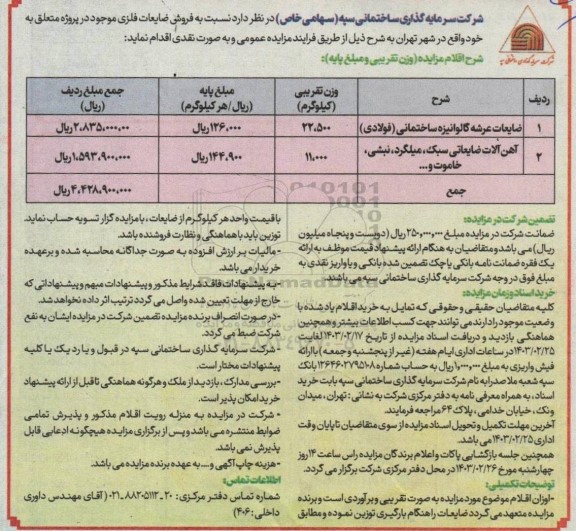 شرکت سرمایه گذاری ساختمانی سپه (سهامی خاص) در نظر دارد نسبت به فروش ضایعات فلزی موجود در پروژه متعلق به
خود واقع در شهر تهران به شرح ذیل از طریق فرایند مزایده عمومی و به صورت نقدی اقدام نماید:
شرح اقلام مزایده (وزن تقریبی و مبلغ پایه):
ردیف شرح وزن تقریبی (کیلوگرم) مبلغ پایه (ریال/هر کیلوگرم) جمع مبلغ ردیف (ریال)
۱ ضایعات عرشه گالوانیزه ساختمانی (فولادی) ۲۲،۵۰۰ ۱۲۶،۰۰۰ ریال ۲،۸۳۵،۰۰۰،۰۰۰ ریال
۲ آهن آلات ضایعاتی سبک، میلگرد، نبشی، خاموت و... ۱۱،۰۰۰ ۱۴۴،۹۰۰ ریال ۱،۵۹۳،۹۰۰،۰۰۰ ریال
جمع ۴،۴۲۸،۹۰۰،۰۰۰ ریال
تضمین شرکت در مزایده:
ضمانت شرکت در مزایده مبلغ ۲۵۰،۰۰۰،۰۰۰ ریال (دویست و پنجاه میلیون
ریال) می باشد و متقاضیان به هنگام ارائه پیشنهاد قیمت موظف به ارائه
یک فقره ضمانت نامه بانکی یا چک تضمین شده بانکی و یا واریز نقدی به
مبلغ فوق در وجه شرکت سرمایه گذاری ساختمانی سپه می باشند.
خرید اسناد و زمان مزایده:
کلیه متقاضیان حقیقی و حقوقی که تمایل به خرید اقلام یاد شده با
وضعیت موجود را دارند می توانند جهت کسب اطلاعات بیشتر و همچنین
هماهنگی بازدید و دریافت اسناد مزایده از تاریخ ۱۴۰۳/۰۲/۱۷ لغایت
۱۴۰۳/۰۲/۲۵ در ساعات اداری ایام هفته (غیر از پنجشنبه و جمعه) با ارائه
فیش واریزی به مبلغ ۱،۰۰۰،۰۰۰ ریال به حساب شماره ۱۳۶۴۶۰۲۷۹۵۱۰۸ بانک
سپه شعبه ملاصدرا به نام شرکت سرمایه گذاری ساختمانی سپه بابت خرید
اسناد، به همراه معرفی نامه به دفتر مرکزی شرکت به نشانی: تهران، میدان
ونک، خیابان خدامی، پلاک ۶۴ مراجعه فرمایند.
آخرین مهلت تکمیل و تحویل اسناد مزایده از سوی متقاضیان تا پایان وقت
اداری ۱۴۰۳/۰۲/۲۵ می باشد.
همچنین جلسه بازگشایی پاکات و اعلام برندگان مزایده راس ساعت ۱۴ روز
چهارشنبه مورخ ۱۴۰۳/۰۲/۲۶ در محل دفتر مرکزی شرکت برگزار می گردد.
توضیحات تکمیلی:
-اوزان اقلام موضوع مورد مزایده به صورت تقریبی و برآوردی است و برنده
مزایده متعهد می گردد ضایعات را هنگام بارگیری توزین نموده و مطابق
با قیمت واحد هر کیلوگرم از ضایعات، با مزایده گزار تسویه حساب نماید.
توزین باید با هماهنگی و نظارت فروشنده باشد.
-مالیات بر ارزش افزوده به صورت جداگانه محاسبه شده و برعهده
خریدار می باشد.
-به پیشنهادات فاقد شرایط مذکور و پیشنهادات مبهم و پیشنهاداتی که
خارج از مهلت تعیین شده واصل می گردد ترتیب اثر داده نخواهد شد.
-در صورت انصراف برنده مزایده تضمین شرکت در مزایده ایشان به نفع
شرکت ضبط می گردد.
-شرکت سرمایه گذاری ساختمانی سپه در قبول و یا رد یک یا کلیه
پیشنهادات مختار است.
-بررسی مدارک، بازدید از ملک و هرگونه هماهنگی تا قبل از ارائه پیشنهاد
خرید امکان پذیر است.
-شرکت در مزایده به منزله رویت اقلام مذکور و پذیرش تمامی
ضوابط منتشره می باشد و پس از برگزاری مزایده هیچگونه ادعایی قابل
پذیرش نمی باشد.
-هزینه چاپ آگهی و... به عهده برنده مزایده می باشد.
اطلاعات تماس:
شماره تماس دفتر مرکزی: ۲۰-۸۸۲۰۵۱۱۲-۰۲۱ (آقای مهندس داوری
داخلی: ۴۰۶)